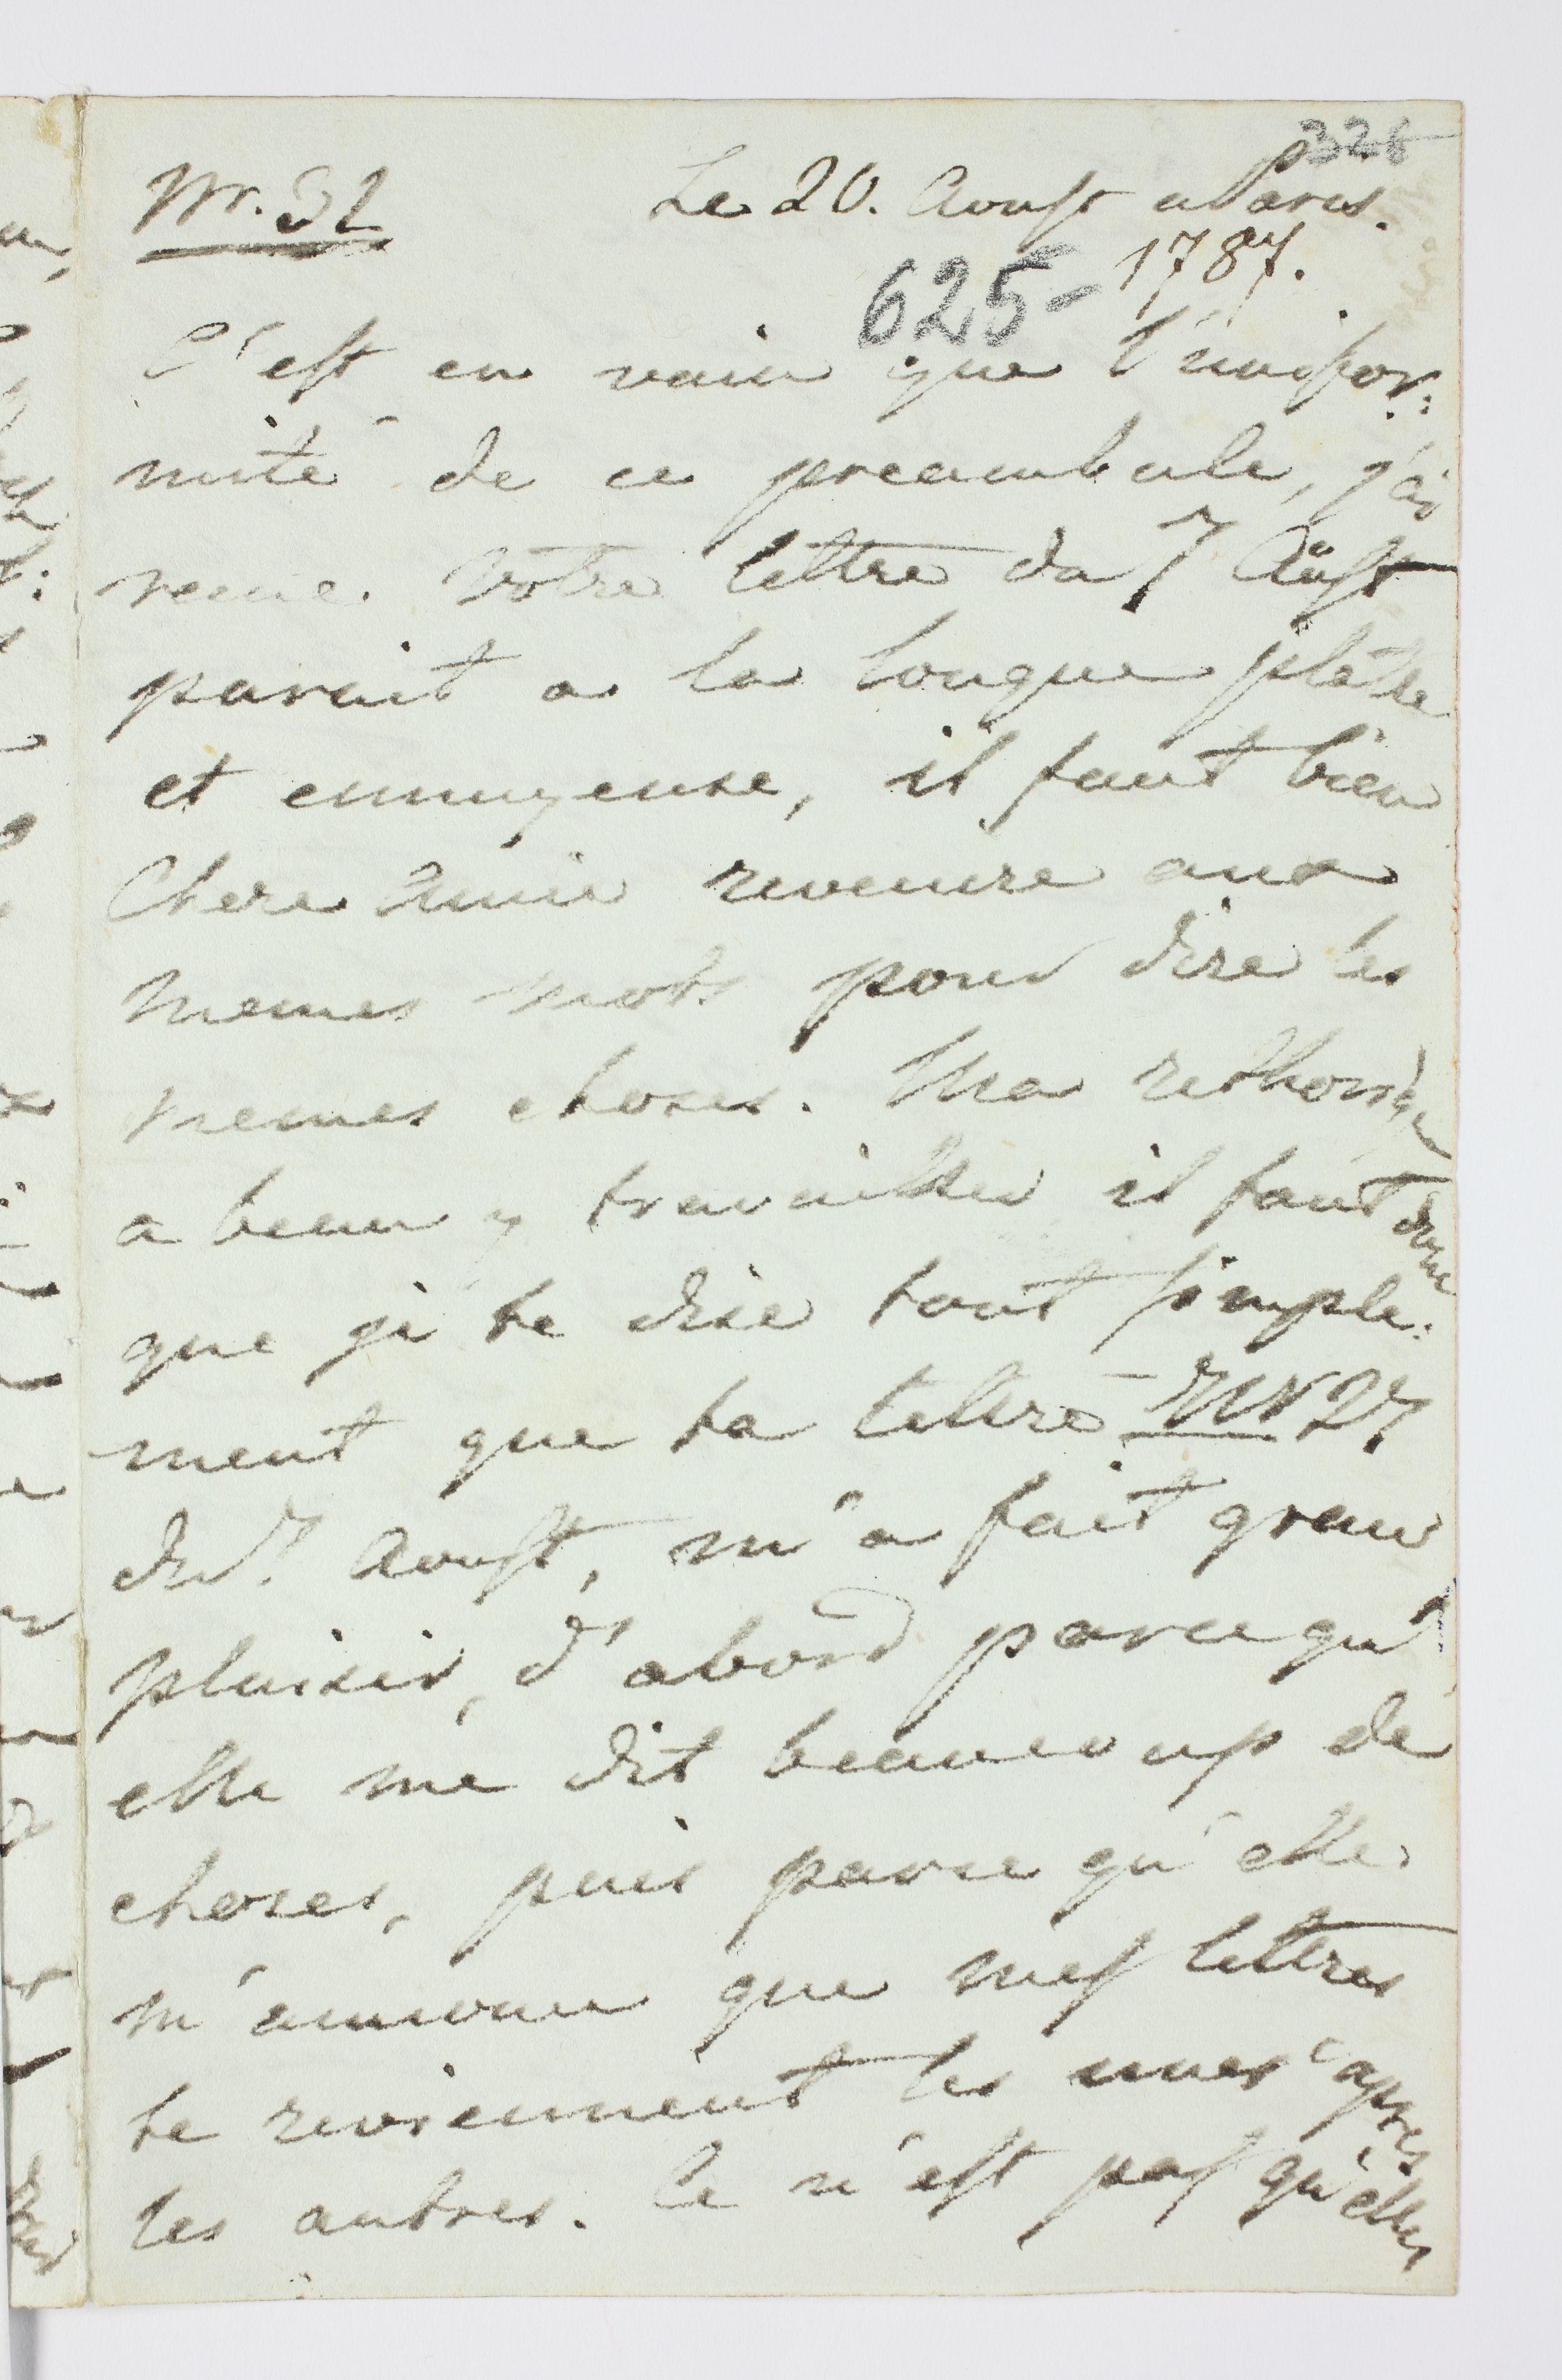 328
Nr. 32 Le 20. Aoust a Paris.
625- 1787.
C'est en vain que l'unifor:
mité de ce preambule, j'ai
reçue Votre lettre du 7 Aust
parait a la longue platte
et ennuyeuse, il faut bien
Chere Amie revenire aux
memes mots pour dire les
memes choses. Ma rethorique
a beau y travailler il faut donc
que je te dise tout simple:
ment que ta lettre 27
du 7 Aoust, m'a fait grand
plaisir, d'abord parcequ'
elle me dit beaucoup de
choses, puis parce qu'elle
m'annonce que mes lettres
te reviennent les unes apres
les autres. Ce n'est pas qu'elles